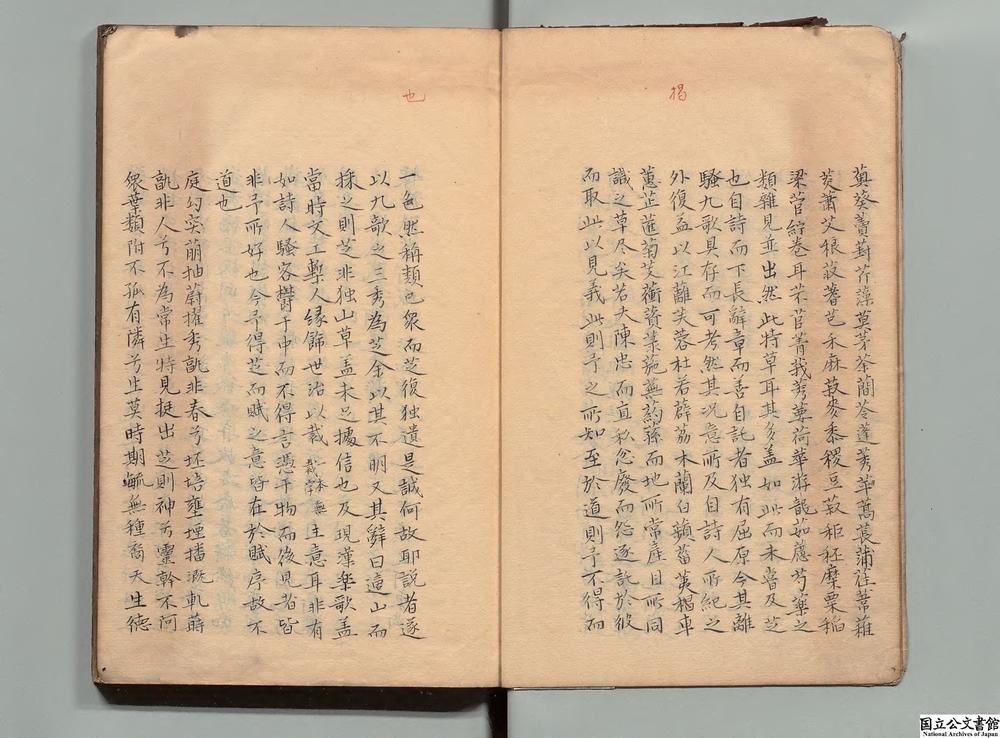 揭
萯葵蕢葑芹藻莫茅荼蕑苓蓬莠苹蒿萇蒲萑葦蓷
茭蕭艾稂莪蓍芑禾麻菽麥黍稷豆菽秬秠穈粟稻
梁菅紵卷耳芣苢菁莪葽荷華游龍茹藘芍藥之
類雜見並出然此特草耳其多盖如此而未嘗及芝
也自詩而下長辭章而善自託者独有屈原今其離
騷九歌具存而可考然其况意所及自詩人所紀之
外復益以江蘺芙蓉杜若薜荔木蘭白蘋菑蓠榥車
蕙芷菊艾蘅薋菉葹蕪葯蓀而地所常産目所同
識之草尽矣若夫陳忠而直秋忿廢而怨逐託於彼
而取此以見義此則予之所知至於道則予不得而
也
一色然稱類已衆而芝復独遺是誠何故耶説者遂
以九歌之三秀為芝余以其不明又其辞曰這山而
採之則芝非独山草盖未足據信也及現漢樂歌盖
當時文工塹人縁飾世治以裁一本無裁字注意耳非有
如詩人騷客欝于中而不得言憑于物而後見者皆
非予所好也今予得芝而賦之意皆在於賦序故不
道也
庭幻突萠抽蔚擢秀孰非春兮坯培壅堙播溉軋蒔
孰非人兮不為常生特見挺出芝則神兮靈幹不阿
衆葉類附不孤有隣兮生莫時期無種裔天生德
国立公文書館
National Archives of Japan